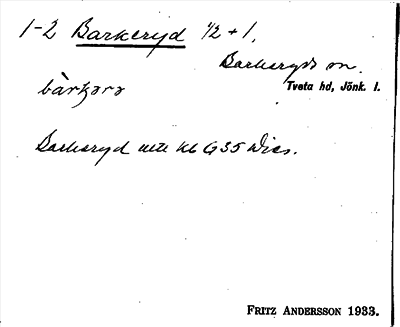 1-2 Barkeryd 1/2 + 1,
Barkeryds sn.
Tveta hd, Jönk. l.
bàrkərə
Barkeryd
FRITZ ANDERSSON 1933.